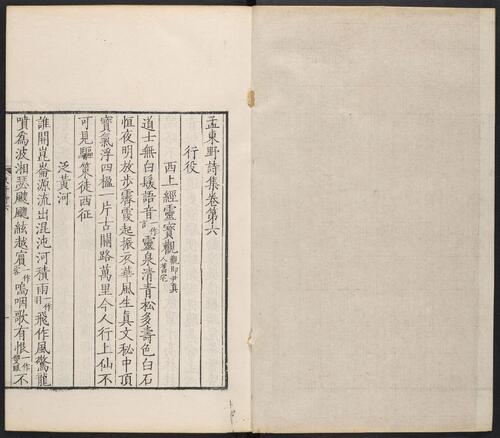 孟東野詩集卷第六
行役
西上經靈寶觀觀即尹真人舊宅
道士無白髮語音一作言靈泉清青松多壽色白石
恒夜明放步霽霞起振衣華風生真文秘中頂
寶氣浮四楹一片古關路萬里今人行上仙不
可見驅策徒西征
泛黃河
誰開崑崙源流出混沌河積雨一作羽飛作風驚龍
噴為波湘瑟颼飀絃越賔一作客嗚咽歌有恨一作雙淚不